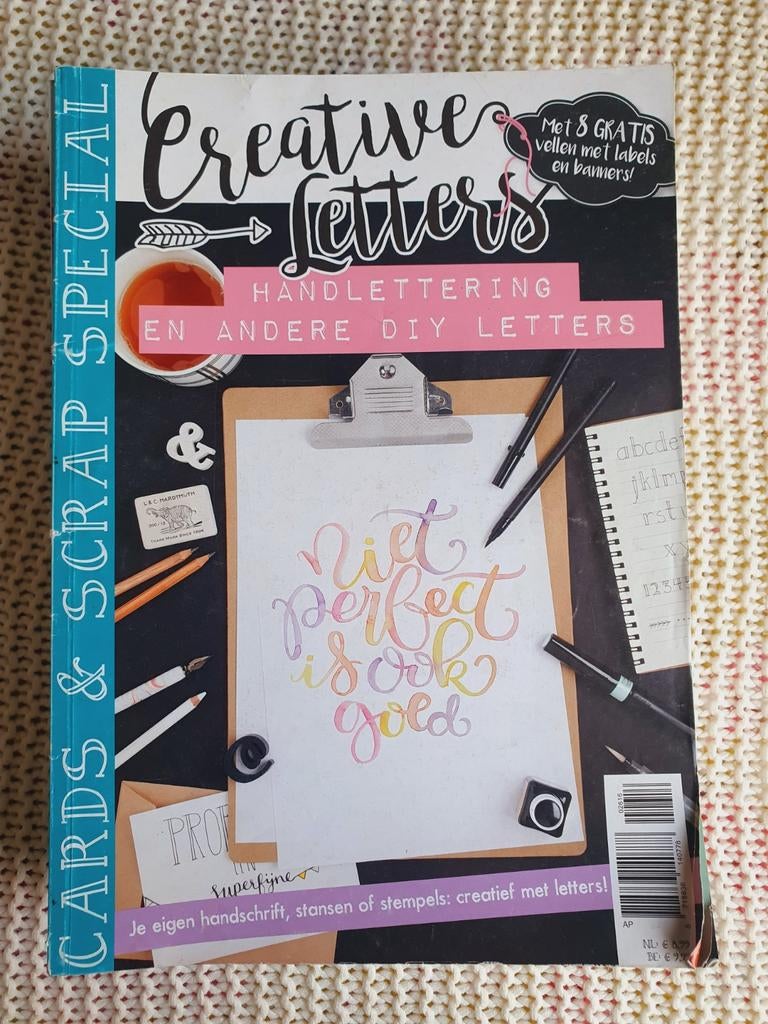 CARDS & SCRAP SPECIAL
Creative
Letters
Met 8 GRATIS
vellen met labels
en banners!
HANDLETTERING
EN ANDERE DIY LETTERS
&
L & C HARDTMUTH
300/12
TRADE MARK SINCE 1790
abcde
jklm
rst
xy
1234
niet
perfect
is ook
goed
e
PROF
superfijne
Je eigen handschrift, stansen of stempels: creatief met letters!
02616
140778
AP
NL: € 8,99
BE: €